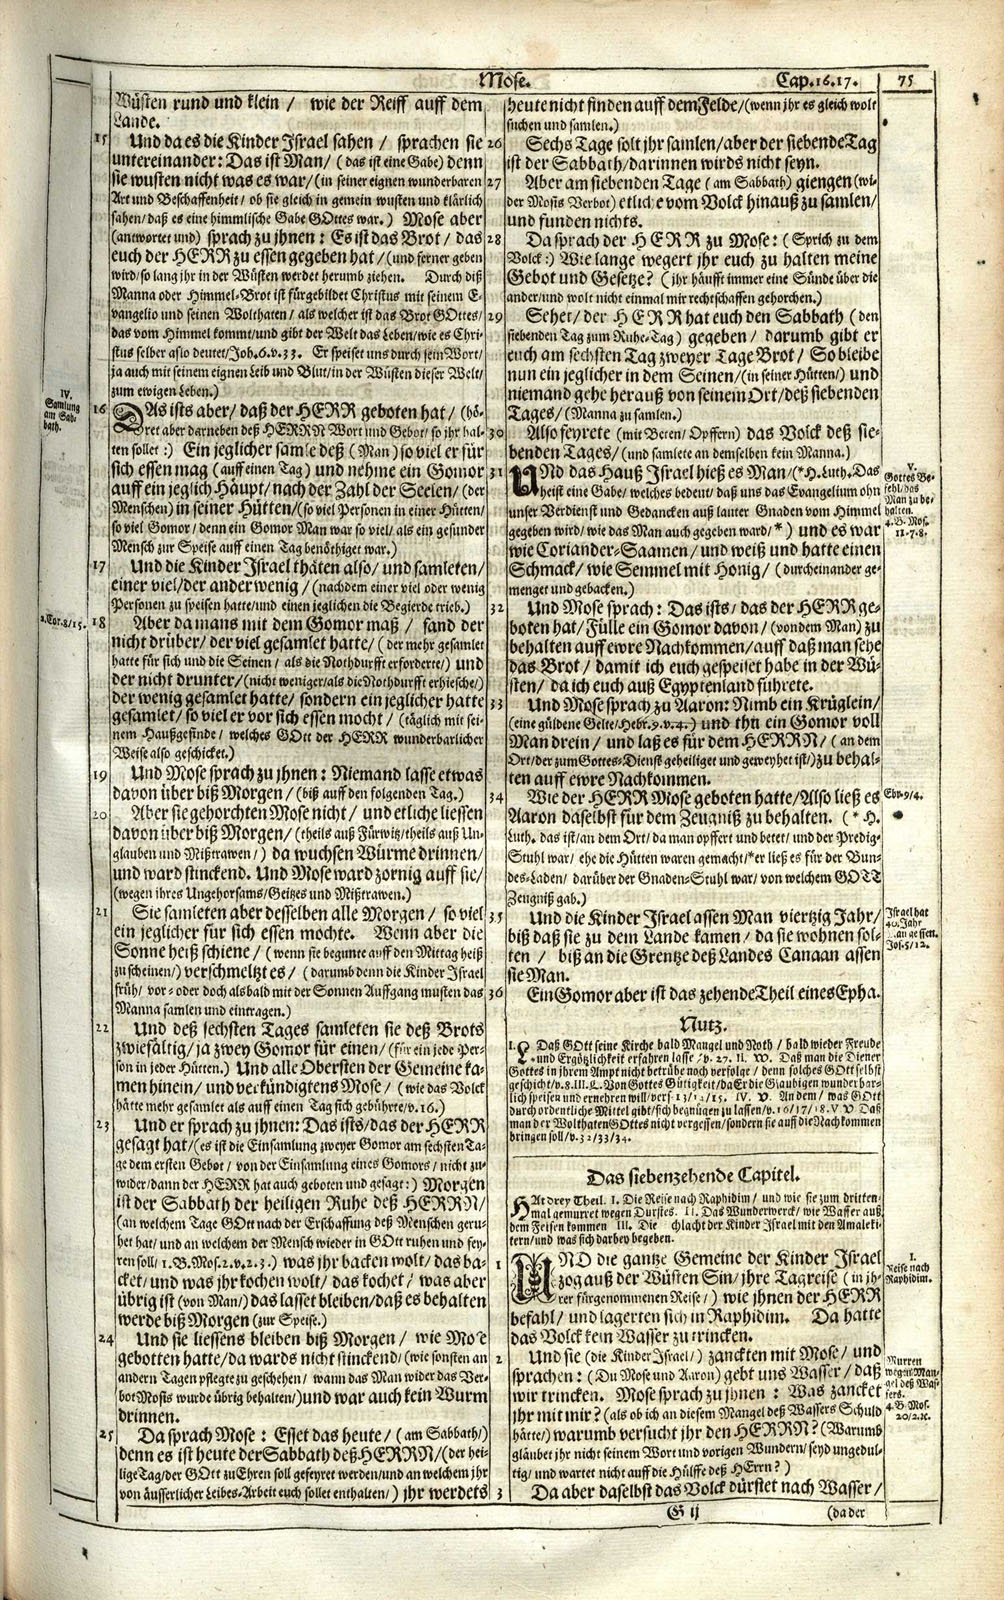 Mose.
Cap. 16. 17.
75
Wüsten rund und klein / wie der Reiff auff dem
Lande.
15 Und da es die Kinder Israel sahen / sprachen sie
untereinander: Das ist Man / (das ist eine Gabe) denn
sie wusten nicht was es war / (in seiner eignen wunderbaren
Art und Beschaffenheit / ob sie gleich in gemein wusten und klärlich
sahen / daß es eine himmlische Gabe GOttes war.) Mose aber
(antwortet und) sprach zu jhnen: Es ist das Brot / das
euch der HERR zu essen gegeben hat / (und ferner geben
wird / so lang jhr in der Wüsten werdet herumb ziehen. Durch diß
Manna oder Himmel-Brot ist fürgebildet Christus mit seinem E-
vangelio und seinen Wolthaten / als welcher ist das Brot GOttes /
das vom Himmel kommt / und gibt der Welt das Leben / wie es Chri-
stus selber also deutet / Joh. 6. v. 33. Er speiset uns durch sein Wort /
ja auch mit seinem eignen Leib und Blut / in der Wüsten dieser Welt /
zum ewigen Leben.)
IV.
Samlung
am Sab-
bath.
16 DAs ists aber / daß der HERR geboten hat / (hö-
ret aber darneben deß HERRN Wort und Gebot / so jhr hal-
ten sollet:) Ein jeglicher samle deß (Man) so viel er für
sich essen mag (auff einen Tag) und nehme ein Gomor
auff ein jeglich Häupt / nach der Zahl der Seelen / (der
Menschen) in seiner Hütten / (so viel Personen in einer Hütten /
so viel Gomor / denn ein Gomor Man war so viel / als ein gesunder
Mensch zur Speise auff einen Tag benöthiget war.)
17 Und die Kinder Israel thäten also / und samleten /
einer viel / der ander wenig / (nachdem einer viel oder wenig
Personen zu speisen hatte / und einen jeglichen die Begierde trieb.)
2. Cor. 8/15.
18 Aber da mans mit dem Gomor maß / fand der
nicht drüber / der viel gesamlet hatte / (der mehr gesamlet
hatte für sich und die Seinen / als die Nothdurfft erforderte /) und
der nicht drunter / (nicht weniger / als die Nothdurfft erhiesche /)
der wenig gesamlet hatte / sondern ein jeglicher hatte
gesamlet / so viel er vor sich essen mocht / (täglich mit sei-
nem Haußgesinde / welches GOtt der HERR wunderbarlicher
Weise also geschicket.)
19 Und Mose sprach zu jhnen: Niemand lasse etwas
davon über biß Morgen / (biß auff den folgenden Tag.)
20 Aber sie gehorchten Mose nicht / und etliche liessen
davon über biß Morgen / (theils auß Fürwitz / theils auß Un-
glauben und Mißtrawen /) da wuchsen Würme drinnen /
und ward stinckend. Und Mose ward zornig auff sie /
(wegen jhres Ungehorsams / Geitzes und Mißtrawen.)
21 Sie samleten aber desselben alle Morgen / so viel
ein jeglicher für sich essen mochte. Wenn aber die
Sonne heiß schiene / (wenn sie begunte auff den Mittag heiß
zu scheinen /) verschmeltzt es / (darumb denn die Kinder Israel
früh / vor- oder doch alsbald mit der Sonnen Auffgang musten das
Manna samlen und eintragen.)
22 Und deß sechsten Tages samleten sie deß Brots
zwiefältig / ja zwey Gomor für einen / (für ein jede Per-
son in jeder Hütten.) Und alle Obersten der Gemeine ka-
men hinein / und verkündigtens Mose / (wie das Volck
hätte mehr gesamlet als auff einen Tag sich gebührte / v. 16.)
23 Und er sprach zu jhnen: Das ists / das der HERR
gesagt hat / (es ist die Einsamlung zweyer Gomor am sechsten Ta-
ge dem ersten Gebot / von der Einsamlung eines Gomors / nicht zu-
wider / dann der HERR hat auch geboten und gesagt:) Morgen
ist der Sabbath der heiligen Ruhe deß HERRN /
(an welchem Tage GOtt nach der Erschaffung deß Menschen geru-
het hat / und an welchem der Mensch wieder in GOtt ruhen und fey-
ren soll / 1. B. Mos. 2. v. 2. 3.) was jhr backen wolt / das ba-
cket / und was jhr kochen wolt / das kochet / was aber
übrig ist (von Man /) das lasset bleiben / daß es behalten
werde biß Morgen (zur Speise.)
24 Und sie liessens bleiben biß Morgen / wie Mose
gebotten hatte / da wards nicht stinckend / (wie sonsten an
andern Tagen pflegte zu geschehen / wann das Man wider das Ver-
bot Mosis wurde übrig behalten /) und war auch kein Wurm
drinnen.
25 Da sprach Mose: Esset das heute / (am Sabbath /)
denn es ist heute der Sabbath deß HERRN / (der hei-
lige Tag / der GOtt zu Ehren soll gefeyret werden / und an welchem jhr
von äusserlicher Leibes-Arbeit euch sollet enthalten /) jhr werdets
heute nicht finden auff dem Felde / (wenn jhr es gleich wolt
suchen und samlen.)
26 Sechs Tage solt jhr samlen / aber der siebende Tag
ist der Sabbath / darinnen wirds nicht seyn.
27 Aber am siebenden Tage (am Sabbath) giengen (wi-
der Mosis Verbot) etliche vom Volck hinauß zu samlen /
und funden nichts.
28 Da sprach der HERR zu Mose: (Sprich zu dem
Volck:) Wie lange wegert jhr euch zu halten meine
Gebot und Gesetze? (jhr häufft immer eine Sünde über die
ander / und wolt nicht einmal mir rechtschaffen gehorchen.)
29 Sehet / der HERR hat euch den Sabbath (den
siebenden Tag zum Ruhe-Tag) gegeben / darumb gibt er
euch am sechsten Tag zweyer Tage Brot / So bleibe
nun ein jeglicher in dem Seinen / (in seiner Hütten /) und
niemand gehe herauß von seinem Ort / deß siebenden
Tages / (Manna zu samlen.)
30 Also feyrete (mit Beten / Opffern) das Volck deß sie-
benden Tages / (und samlete an demselben kein Manna.)
V.
Gottes Be-
fehl / das
Man zu be-
halten.
4. B. Mos.
11. 7. 8.
31 UNd das Hauß Israel hieß es Man / (* H. Luth. Das
heist eine Gabe / welches bedeut / daß uns das Evangelium ohn
unser Verdienst und Gedancken auß lauter Gnaden vom Himmel
gegeben wird / wie das Man auch gegeben ward / *) und es war
wie Coriander-Saamen / und weiß und hatte einen
Schmack / wie Semmel mit Honig / (durcheinander ge-
menget und gebacken.)
32 Und Mose sprach: Das ists / das der HERR ge-
boten hat / Fülle ein Gomor davon / (von dem Man) zu
behalten auff ewre Nachkommen / auff daß man sehe
das Brot / damit ich euch gespeiset habe in der Wü-
sten / da ich euch auß Egyptenland führete.
33 Und Mose sprach zu Aaron: Nimb ein Krüglein /
(eine güldene Gelte / Hebr. 9. v. 4.) und thu ein Gomor voll
Man drein / und laß es für dem HERRN / (an dem
Ort / der zum Gottes-Dienst geheiliget und geweyhet ist /) zu behal-
ten auff ewre Nachkommen.
Ebr. 9/4.
34 Wie der HERR Mose geboten hatte / Also ließ es
Aaron daselbst für dem Zeugniß zu behalten. (* H.
Luth. das ist / an dem Ort / da man opffert und betet / und der Predig-
Stuhl war / ehe die Hütten waren gemacht / * er ließ es für der Bun-
des-Laden / darüber der Gnaden-Stuhl war / von welchem GOTT
Zeugniß gab.)
Israel hat
40. Jahr
Man gessen.
Jos. 5/12.
35 Und die Kinder Israel assen Man viertzig Jahr /
biß daß sie zu dem Lande kamen / da sie wohnen sol-
ten / biß an die Grentze deß Landes Canaan assen
sie Man.
36 Ein Gomor aber ist das zehende Theil eines Epha.
Nutz.
I. L. Daß GOtt seine Kirche bald Mangel und Noth / bald wieder Freude
und Ergötzlichkeit erfahren lasse / v. 27. II. W. Daß man die Diener
Gottes in jhrem Ampt nicht betrübe noch verfolge / denn solches GOtt selbst
geschicht / v. 8. III. L. Von Gottes Gütigkeit / da Er die Glaubigen wunderbar-
lich speisen und ernehren will / vers. 13/14/15. IV. V. An dem / was GOtt
durch ordentliche Mittel gibt / sich begnügen zu lassen / v. 16/17/18. V. V. Daß
man der Wolthaten Gottes nicht vergessen / sondern sie auff die Nachkommen
bringen soll / v. 32/33/34.
Das siebenzehende Capitel.
HAt drey Theil. I. Die Reise nach Raphidim / und wie sie zum dritten-
mal gemurret wegen Durstes. II. Das Wunderwerck / wie Wasser auß
dem Felsen kommen III. Die chlacht der Kinder Israel mit den Amaleki-
tern / und was sich darbey begeben.
I.
Reise nach
Raphidim.
1 UND die gantze Gemeine der Kinder Israel
zog auß der Wüsten Sin / jhre Tagreise (in jh-
rer fürgenommenen Reise /) wie jhnen der HERR
befahl / und lagerten sich in Raphidim. Da hatte
das Volck kein Wasser zu trincken.
Murren
wegen Man-
gel deß Was-
sers.
4. B. Mos.
20/2. ꝛc.
2 Und sie (die Kinder Israel /) zanckten mit Mose / und
sprachen: (Du Mose und Aaron) gebt uns Wasser / daß
wir trincken. Mose sprach zu jhnen: Was zancket
jhr mit mir? (als ob ich an diesem Mangel deß Wassers Schuld
hätte /) warumb versucht jhr den HERRN? (Warumb
gläubet jhr nicht seinem Wort und vorigen Wundern / seyd ungedul-
tig / und wartet nicht auff die Hülffe deß HErrn?)
3 Da aber daselbst das Volck dürstet nach Wasser /
G ij
(da der